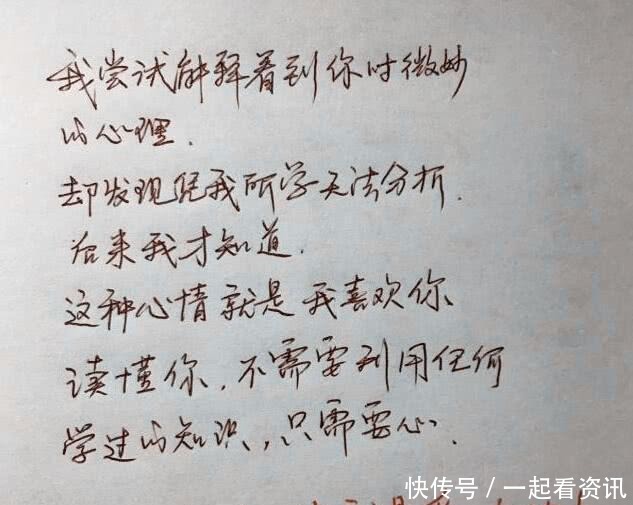 我尝试解释看到你时微妙
的心理.
却发现凭我所学无法分析.
后来我才知道.
这种心情就是我喜欢你
读懂你,不需要利用任何
学过的知识,只需要心.
快传号/一起看资讯